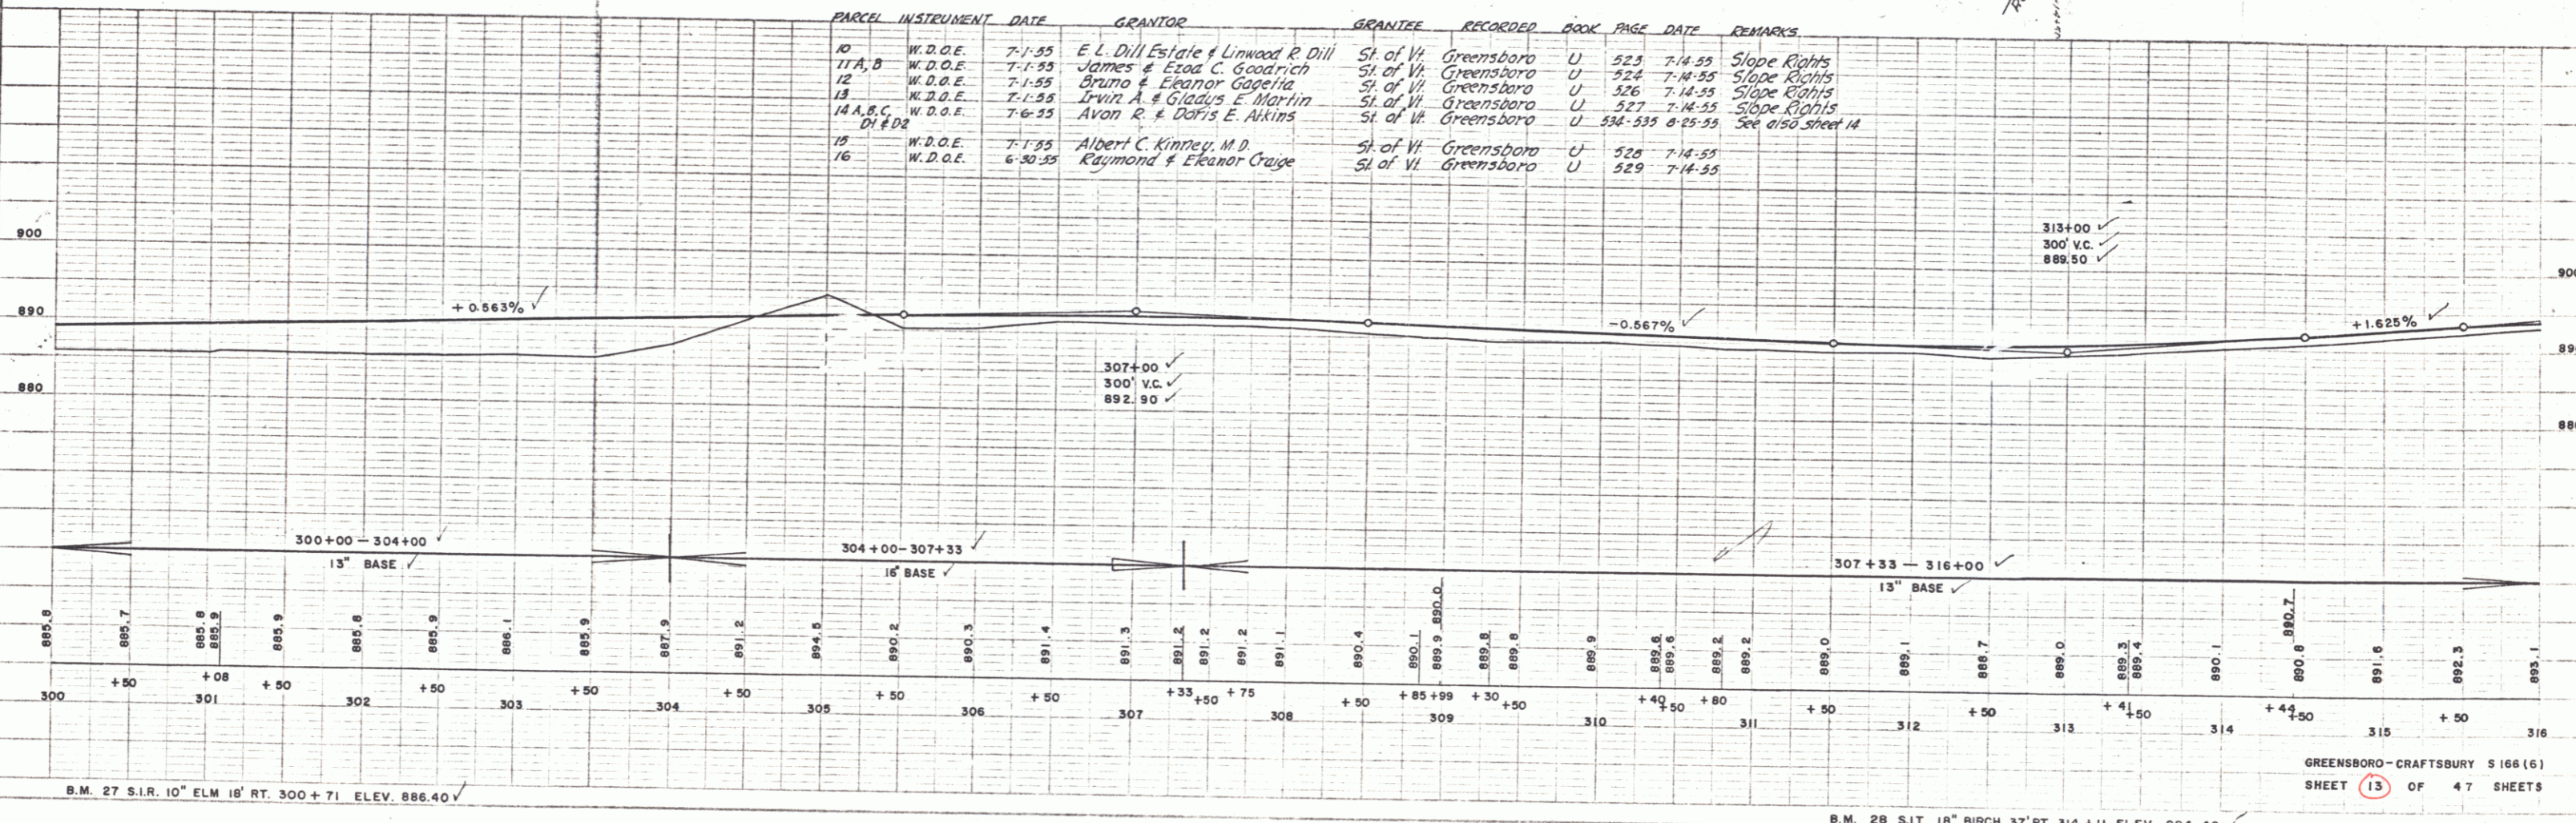 PARCEL INSTRUMENT DATE GRANTOR GRANTEE RECORDED BOOK PAGE DATE REMARKS
10 W.D.O.E. 7-1-55 E.L. Dill Estate & Linwood R. Dill St. of Vt. Greensboro U 523 7-14-55 Slope Rights
11 A, B W.D.O.E. 7-1-55 James & Ezoa C. Goodrich St. of Vt. Greensboro U 524 7-14-55 Slope Rights
12 W.D.O.E. 7-1-55 Bruno & Eleanor Gagetta St. of Vt. Greensboro U 526 7-14-55 Slope Rights
13 W.D.O.E. 7-1-55 Irvin A. & Gladys E. Martin St. of Vt. Greensboro U 527 7-14-55 Slope Rights
14 A,B,C, W.D.O.E. 7-6-55 Avon R. & Doris E. Atkins St. of Vt. Greensboro U 534-535 8-25-55 See also sheet 14
D1 & D2
15 W.D.O.E. 7-1-55 Albert C. Kinney, M.D. St. of Vt. Greensboro U 528 7-14-55
16 W.D.O.E. 6-30-55 Raymond & Eleanor Craige St. of Vt. Greensboro U 529 7-14-55
900
313+00
300' V.C.
889.50
900
890
+0.563%
-0.567%
+1.625%
890
880
307+00
300' V.C.
892.90
880
300+00-304+00
13" BASE
304+00-307+33
16" BASE
307+33-316+00
13" BASE
885.8 885.7 885.8 885.9 885.9 885.8 885.9 886.1 885.9 887.9 891.2 894.5 890.2 890.3 891.4 891.3 891.2 891.2 891.2 891.1 890.4 890.1 889.9 890.0 889.8 889.8 889.9 889.6 889.6 889.2 889.2 889.0 889.1 888.7 889.0 889.3 889.4 890.1 890.7 890.8 891.6 892.3 893.1
+50 +08 +50 +50 +50 +50 +50 +50 +33 +50 +75 +50 +85 +99 +30 +50 +40 +50 +80 +50 +50 +41 +50 +44 +50 +50
300 301 302 303 304 305 306 307 308 309 310 311 312 313 314 315 316
GREENSBORO-CRAFTSBURY S 166(6)
SHEET 13 OF 47 SHEETS
B.M. 27 S.I.R. 10" ELM 18' RT. 300+71 ELEV. 886.40
B.M. 28 S.I.T. 18" BIRCH 37' RT. 314+11 ELEV.